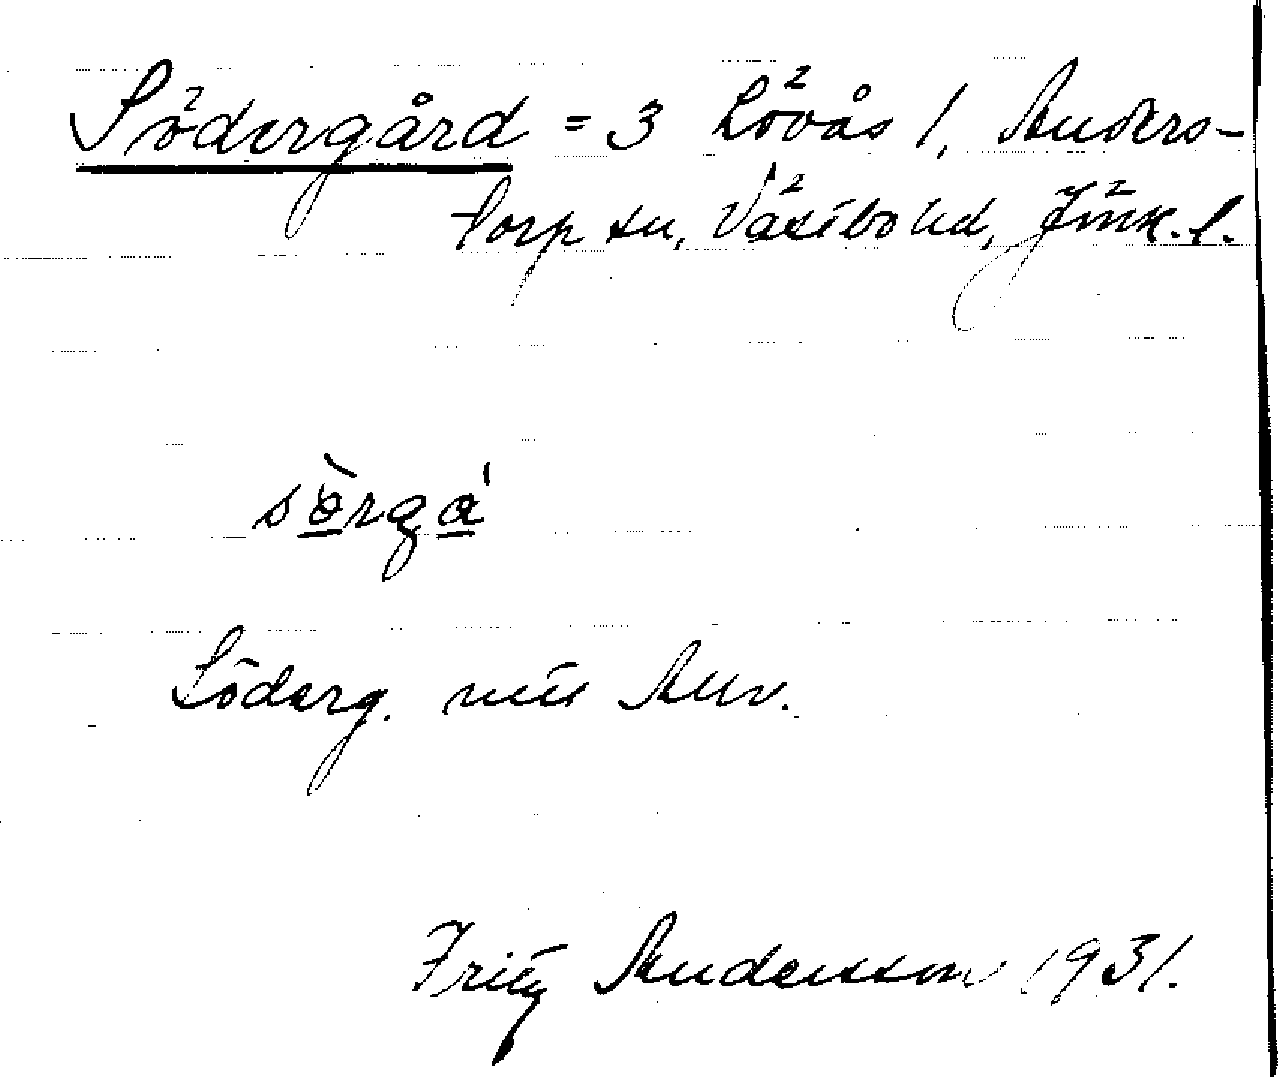 Södergård = 3 Lövås 1, Anders-
torp sn, Västbo hd, Jönk. l.
sö̀rgá
Söderg.
Fritz Andersson 1931.